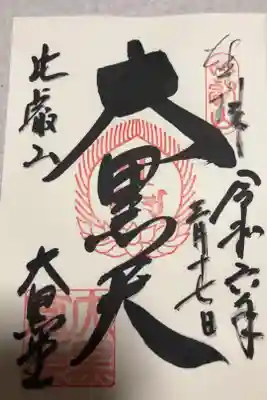 奉拝
令和六年
三月十七日
大黒天
比叡山
大黒堂